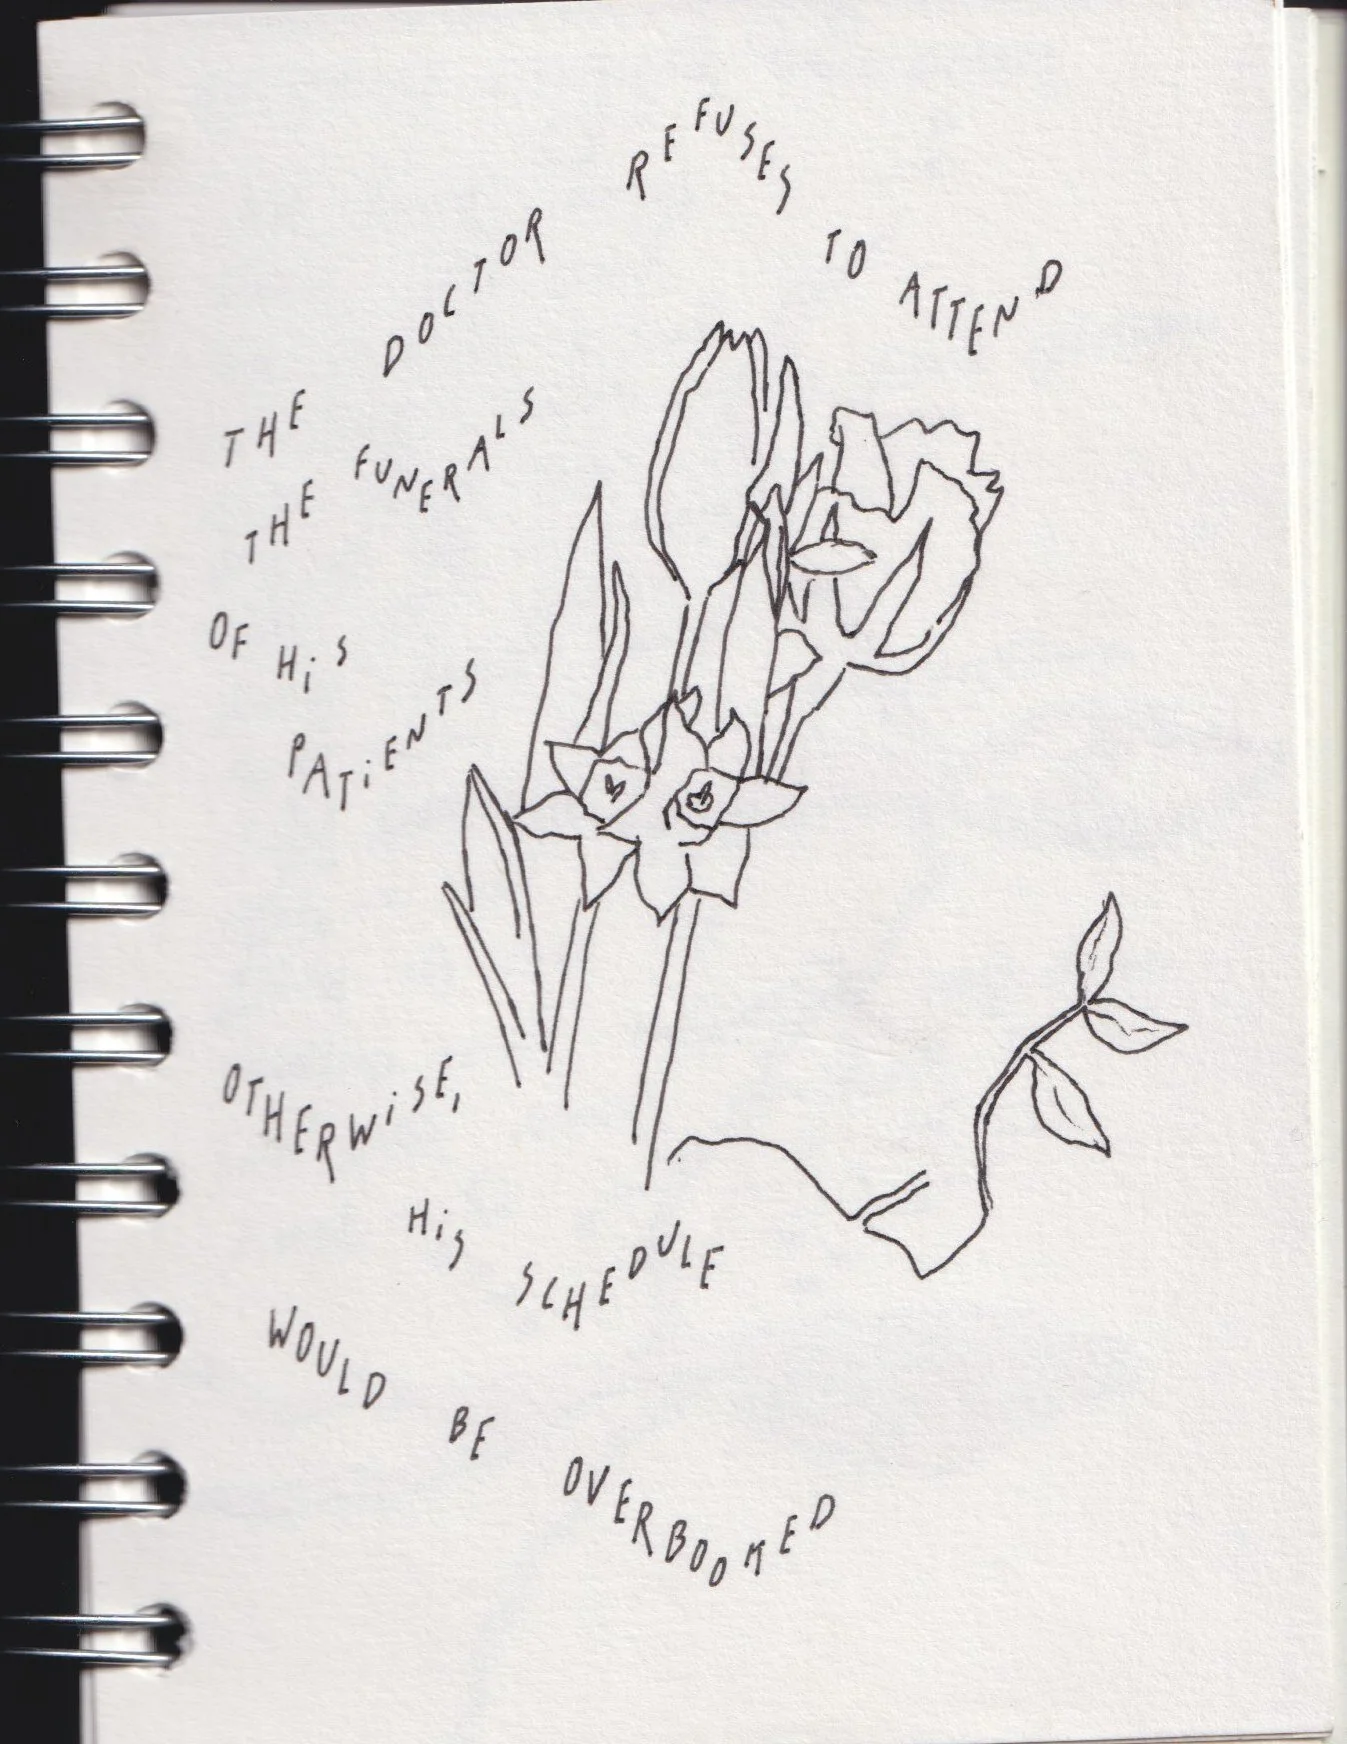 THE DOCTOR REFUSES TO ATTEND
THE FUNERALS
OF HiS
PATiENTS
OTHERWiSE,
HiS SCHEDULE
WOULD BE OVERBOOKED